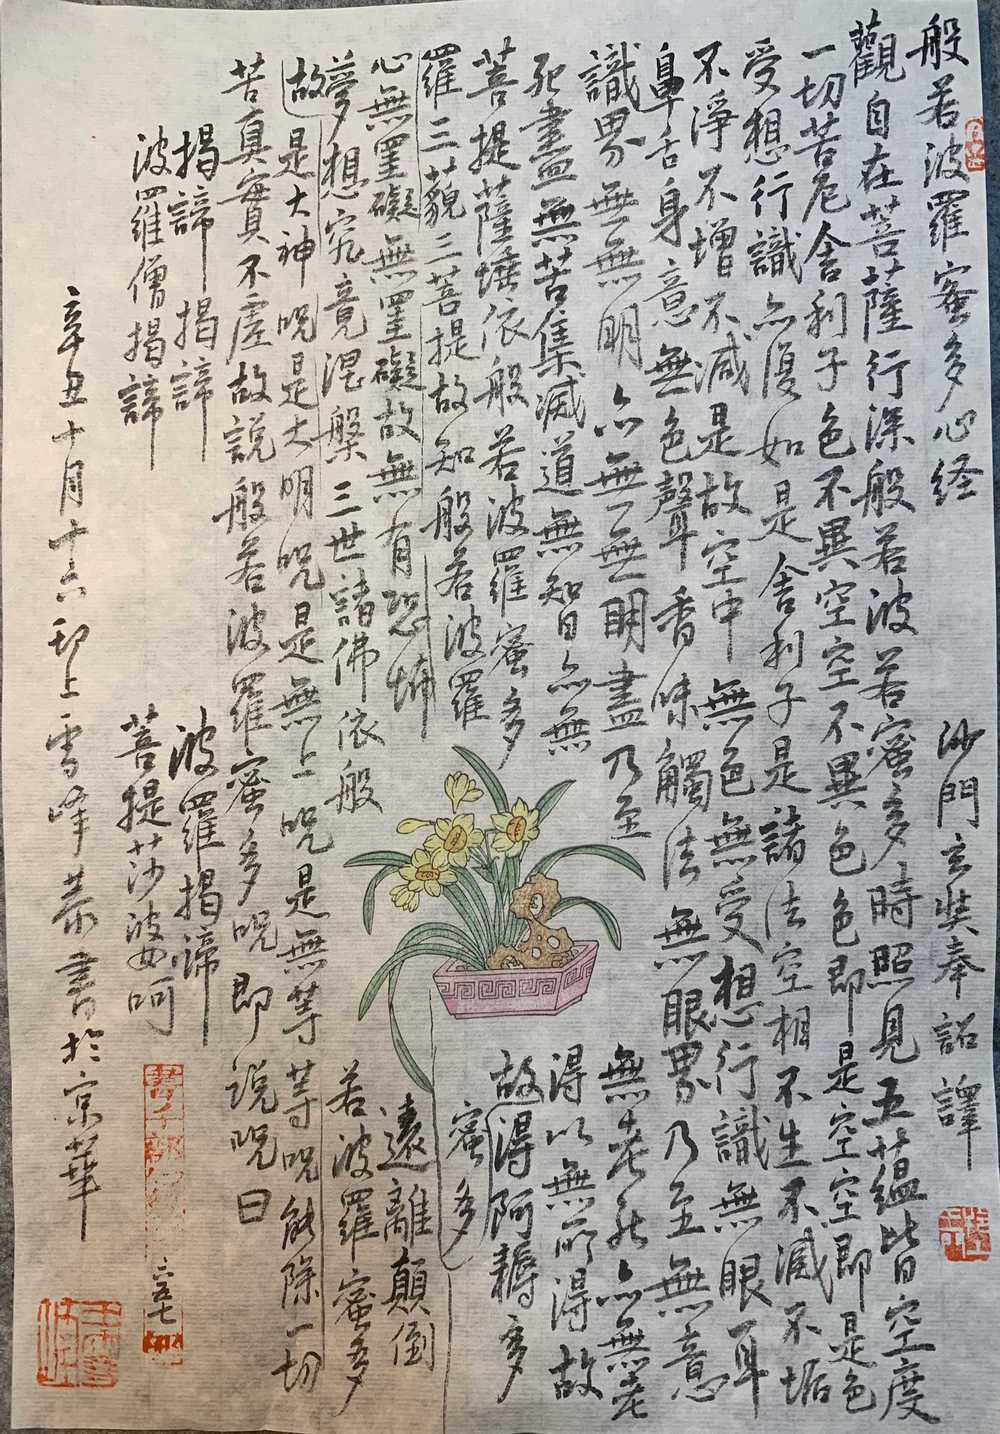 般若波羅蜜多心経 沙門玄奘奉詔譯
觀自在菩薩行深般若波若蜜多時照見五蘊皆空度
一切苦厄舍利子色不異空空不異色色即是空空即是色
受想行識亦復如是舍利子是諸法空相不生不滅不垢
不淨不增不減是故空中無色無受想行識無眼耳
鼻舌身意無色聲香味觸法無眼界乃至無意
識界無無明亦無無明盡乃至無老死亦無老
死盡無苦集滅道無智亦無得以無所得故
菩提薩埵依般若波羅蜜多故得阿耨多
羅三藐三菩提故知般若波羅蜜多
心無罣礙無罣礙故無有恐怖遠離顛倒
夢想究竟涅槃三世諸佛依般若波羅蜜多
故是大神咒是大明咒是無上咒是無等等咒能除一切
苦真實不虛故説般若波羅蜜多咒即说咒曰
揭諦揭諦 波羅揭諦
波羅僧揭諦 菩提莎婆呵
辛丑十月十六卯上雪峰恭書於京華